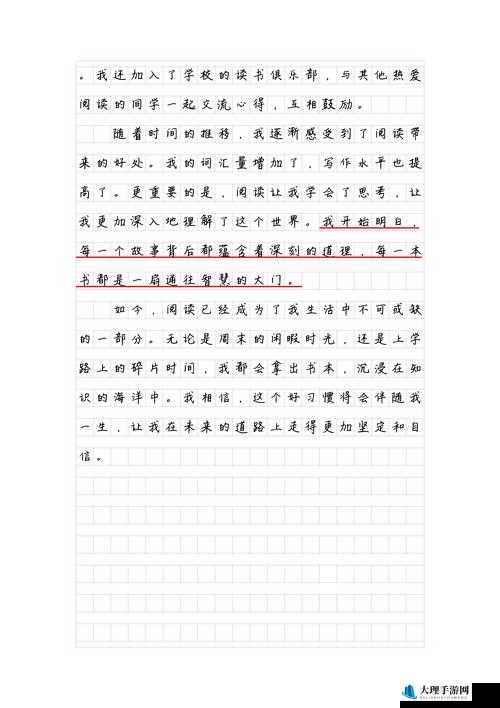 。我还加入了学校的读书俱乐部，与其他热爱
阅读的同学一起交流心得，互相鼓励。
随着时间的推移，我逐渐感受到了阅读带
来的好处。我的词汇量增加了，写作水平也提
高了。更重要的是，阅读让我学会了思考，让
我更加深入地理解了这个世界。我开始明白，
每一个故事背后都蕴含着深刻的道理，每一本
书都是一扇通往智慧的大门。
如今，阅读已经成为了我生活中不可或缺
的一部分。无论是周末的闲暇时光，还是上学
路上的碎片时间，我都会拿出书本，沉浸在知
识的海洋中。我相信，这个好习惯将会伴随我
一生，让我在未来的道路上走得更加坚定和自
信。
大理手游网